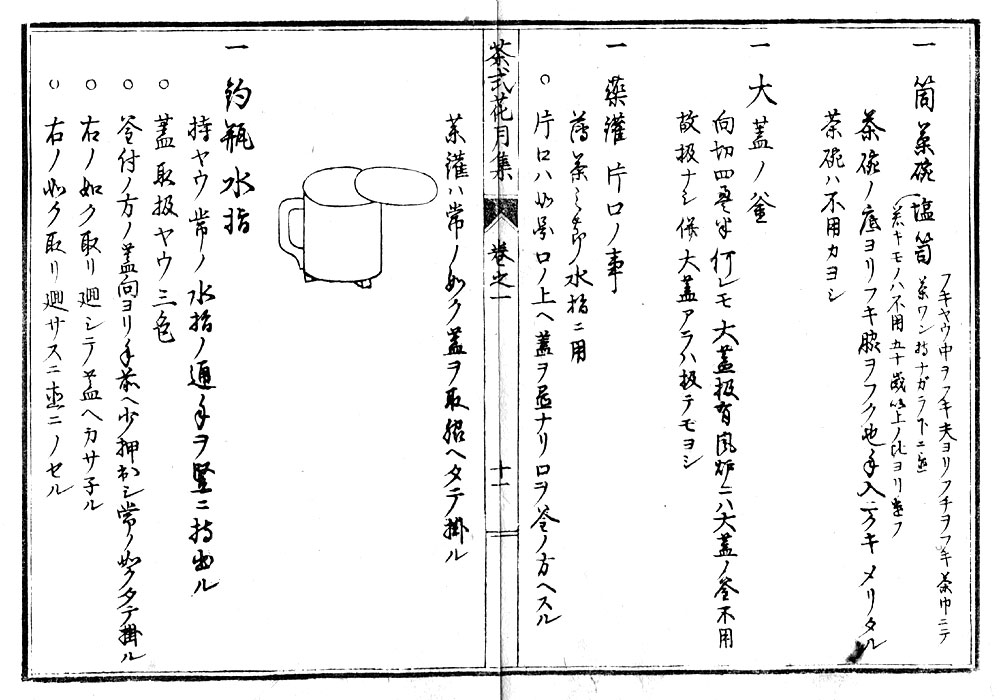 一 筒茶碗 塩筒
フキヤウ中ヲフキ夫ヨリフチヲフキ茶巾ニテ
茶ワン持ナガラ下ニ置
若キモノハ不用五十歳以上ノ比ヨリ遣フ
茶碗ノ底ヨリフキ脇ヲフク也手入ニクキメリタル
茶碗ハ不用カヨシ
一 大蓋ノ釜
向切四畳半何レモ大蓋扱有風炉ニハ大蓋ノ釜不用
故扱ナシ併大蓋アラハ扱テモヨシ
一 薬鑵 片口ノ事
薄茶之節ノ水指ニ用
○ 片口ハ如常口ノ上ヘ蓋ヲ置ナリ口ヲ釜ノ方ヘスル
茶式花月集
巻之一
十一
薬鑵ハ常ノ如ク蓋ヲ取節ヘタテ掛ル
一 釣瓶水指
持ヤウ常ノ水指ノ通手ヲ竪ニ持出ル
○ 蓋取扱ヤウ三色
○ 釜付ノ方ノ蓋向ヨリ手前ヘ少押出シ常ノ如クタテ掛ル
○ 右ノ如ク取リ廻シテ蓋ヘカサ子ル
○ 右ノ如ク取リ廻サスニ直ニノセル